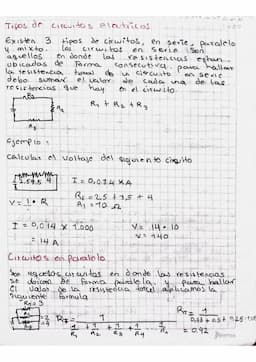 Tipos de circuitos electricos
Existen 3 tipos de circuitos, en serie, paralelo
y mixto. Los circuitos en serie son
aquellos en donde las resistencias estan
ubicadas de forma consecutiva, para hallar
la resistencia total de un circuito en serie
debo sumar el valor de cada una de las
resistencias que hay en el circuito.
R1 + R2 + R3
R2
R3
Ejemplo:
Calcular el voltaje del siguiente circuito
I = 0,014 KA
V = I • R
I = 0,014 x 1.000
= 14 A
V= 14 • 10
V= 140
Circuitos en Paralelo
Son aquellos circuitos en donde las resistencias
se ubican de forma paralela, y para hallar
el valor de la resistencia total aplicamos la
siguiente formula
RT =
1
R1 R2 R3 R4
= 0,92